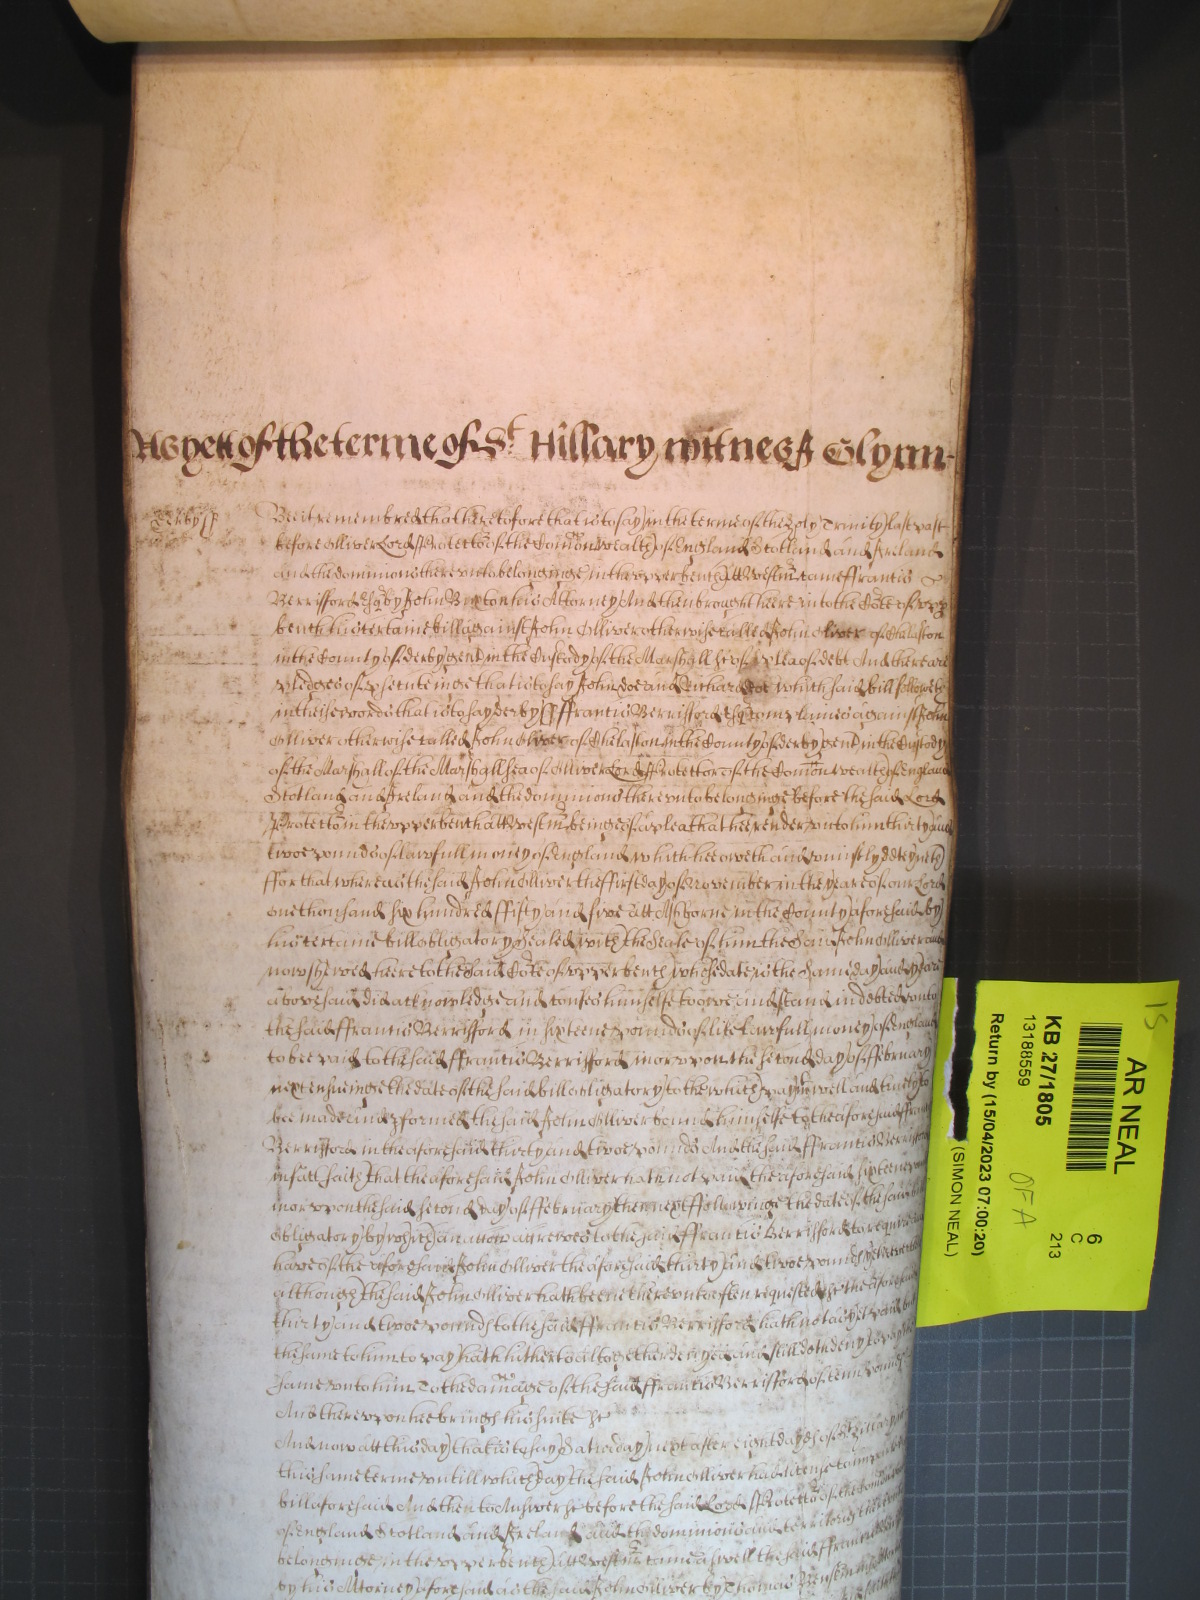 As yett of the terme of St. Hillary witnes J Glynn
Derby ss
Be it remembred that heretofore that is to say in the terme of the holy Trinity last past
before Olliver Lord Protector of the Comon wealth of England Scotland and Ireland
and the dominions thereunto belonginge in the upper bench att Westmr came ffrancis
Berrisford Esqr by John Buxton his Attorney And then brought heere into the Cote of upp
bench his certaine bill against John Olliver otherwise called John Oliver of Chelaston
in the County of derby gent in the Custody of the Marshall &c of a plea of debt And there are
pledges of psecuteinge that is to say John doe and Richard Roe which said bill followeth
in theise words that is to say derby ss ffrancis Berrisford Esqr complaines against John
Olliver otherwise called John Oliver of Chelaston in the County of derby gent in the Custody
of the Marshall of the Marshallsea of Olliver Lord Protector of the Comon wealth of England
Scotland and Ireland and the dominions thereunto belonginge before the said Lord
Protector in the upper bench att Westmr beinge of a plea that hee render unto him thirty and
twoe pounds of lawfull money of England which hee oweth and uniustly deteyneth
ffor that whereas the said John Olliver the ffirst day of November in the yeare of our Lord
one thousand six hundred ffifty and five att Ashborne in the County aforesaid by
his certaine bill obligatory Sealed with the Seale of him the said John Olliver and
now shewed heere to the said Cote of upper bench whose date is the same day and yeare
abovesaid did acknowledge and confes himselfe to owe and stand indebted unto
the said ffrancis Berrisford in sixteene pounds of like lawfull money of England
to bee paid to the said ffrancis Berrisford in or upon the second day of ffebruary
next ensueinge the date of the said bill obligatory to the which paymt well and truely to
bee made and pformed the said John Olliver bound himselfe to the aforesaid ffrancis
Berrisford in the aforesaid thirty and twoe pounds And the said ffrancis Berrisford
in fact saith that the aforesaid John Olliver hath not paid the aforesaid sixteene pounds
in or upon the said second day of ffebruary then next ffollowinge the date of the said bill
obligatory by which an accion accrewed to the said ffrancis Berrisford to require and
have of the aforesaid John Olliver the aforesaid thirty and twoe pounds Yet nevertheles
although the said John Olliver hath beene thereunto often requested &c the aforesaid
thirty and twoe pounds to the said ffrancis Berrisford hath not as yet paid but
the same to him to pay hath hitherto altogether denyed and still doth deny to pay the
same unto him To the damage of the said ffrancis Berrisford of tenn pounds
And thereupon hee brings his suite &c
And now att this day that is to say Saturday next after eight dayes of St Hillary in
this same terme untill which day the said John Olliver had license to imparle to the
bill aforesaid And then to Answer &c before the said Lord Protector of the Comon wealth
of England Scotland and Ireland and the dominions and territories thereunto
belonginge in the upper bench att Westmr came aswell the said ffrancis Berrisford
by his Attorney aforesaid as the said John Olliver by Thomas
AR NEAL
KB 27/1805
13188559
Return by (15/04/2023 07:00:20)
(SIMON NEAL)
6
C
213
OFA
15